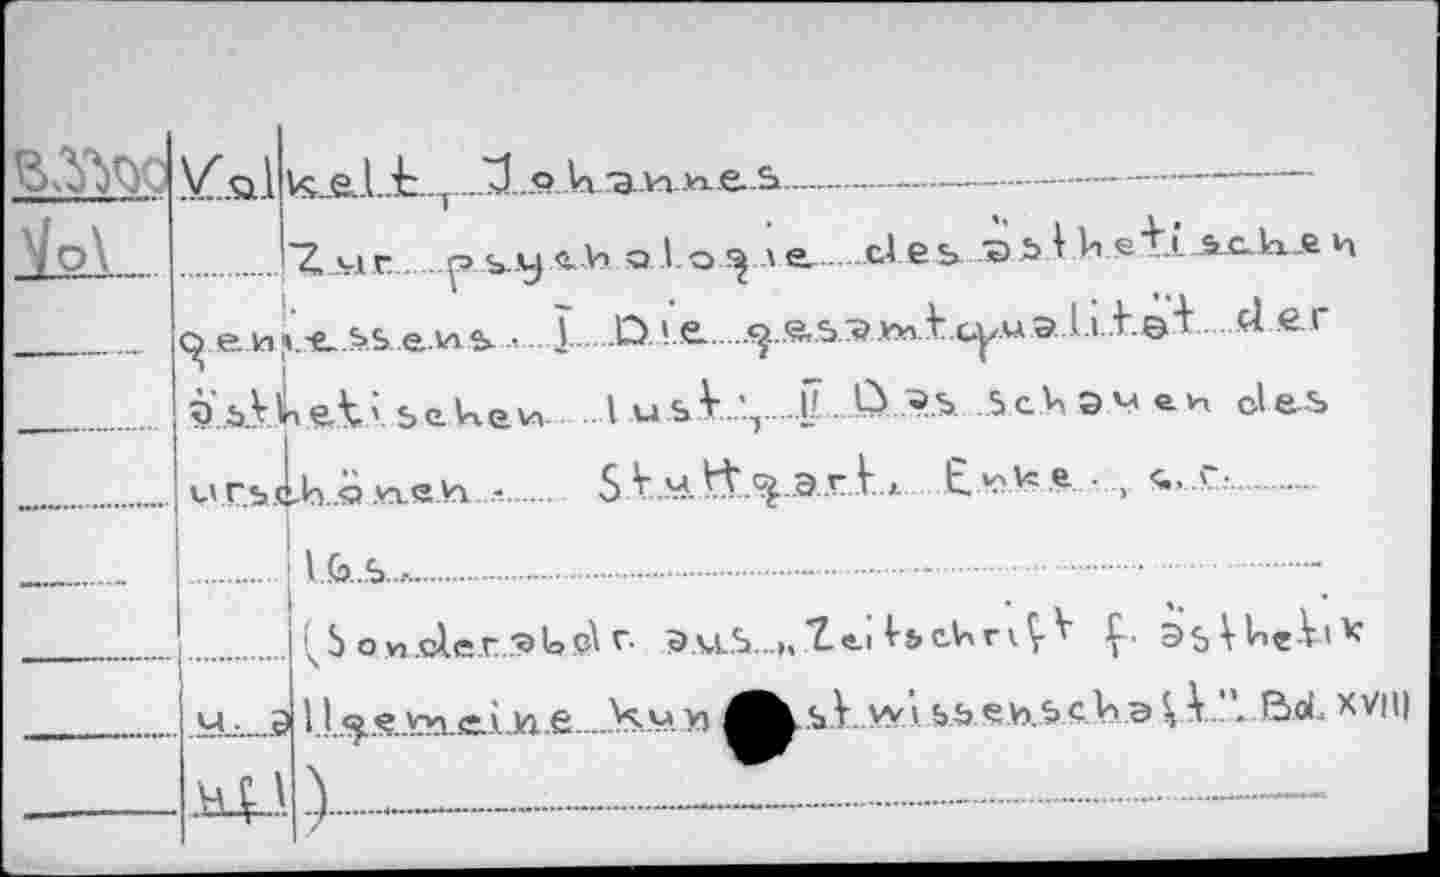 Volkelt, Johannes
Vol Zur psychologie des ästhetischen
geniessens. I Die gesamtqualität der
ästhetischen lust; II Das schauen des
urschönen. Stuttgart, Enke., c.r.
165.
(Sonderabdr. aus „Zeitschrift f. ästhetik
u. allgemeine kunstwissenschaft". Bd. XVIII
Hft 1)